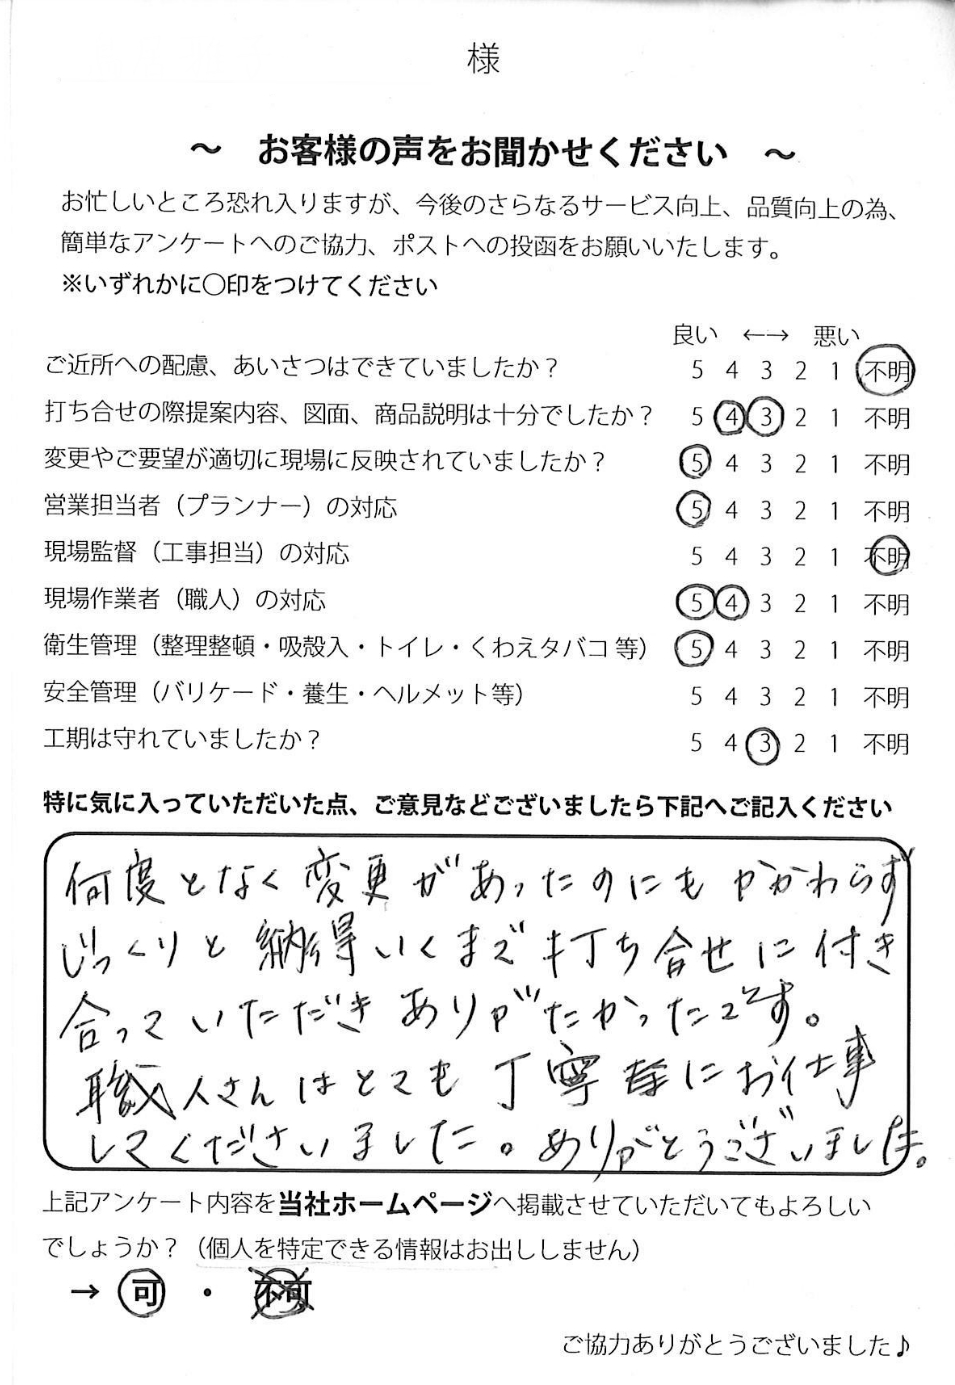 様
～ お客様の声をお聞かせください ～
お忙しいところ恐れ入りますが、今後のさらなるサービス向上、品質向上の為、
簡単なアンケートへのご協力、ポストへの投函をお願いいたします。
※いずれかに〇印をつけてください
良い ←→ 悪い
ご近所への配慮、あいさつはできていましたか？ 5 4 3 2 1 不明
打ち合せの際提案内容、図面、商品説明は十分でしたか？ 5 4 3 2 1 不明
変更やご要望が適切に現場に反映されていましたか？ 5 4 3 2 1 不明
営業担当者（プランナー）の対応 5 4 3 2 1 不明
現場監督（工事担当）の対応 5 4 3 2 1 不明
現場作業者（職人）の対応 5 4 3 2 1 不明
衛生管理（整理整頓・吸殻入・トイレ・くわえタバコ 等） 5 4 3 2 1 不明
安全管理（バリケード・養生・ヘルメット等） 5 4 3 2 1 不明
工期は守れていましたか？ 5 4 3 2 1 不明
特に気に入っていただいた点、ご意見などございましたら下記へご記入ください
何度となく変更があったのにもかかわらず
じっくりと納得いくまで打ち合せに付き
合っていただきありがたかったです。
職人さんはとても丁寧にお仕事
してくださいました。ありがとうございました。
上記アンケート内容を当社ホームページへ掲載させていただいてもよろしい
でしょうか？（個人を特定できる情報はお出ししません）
→ 可 ・ 不可
ご協力ありがとうございました♪